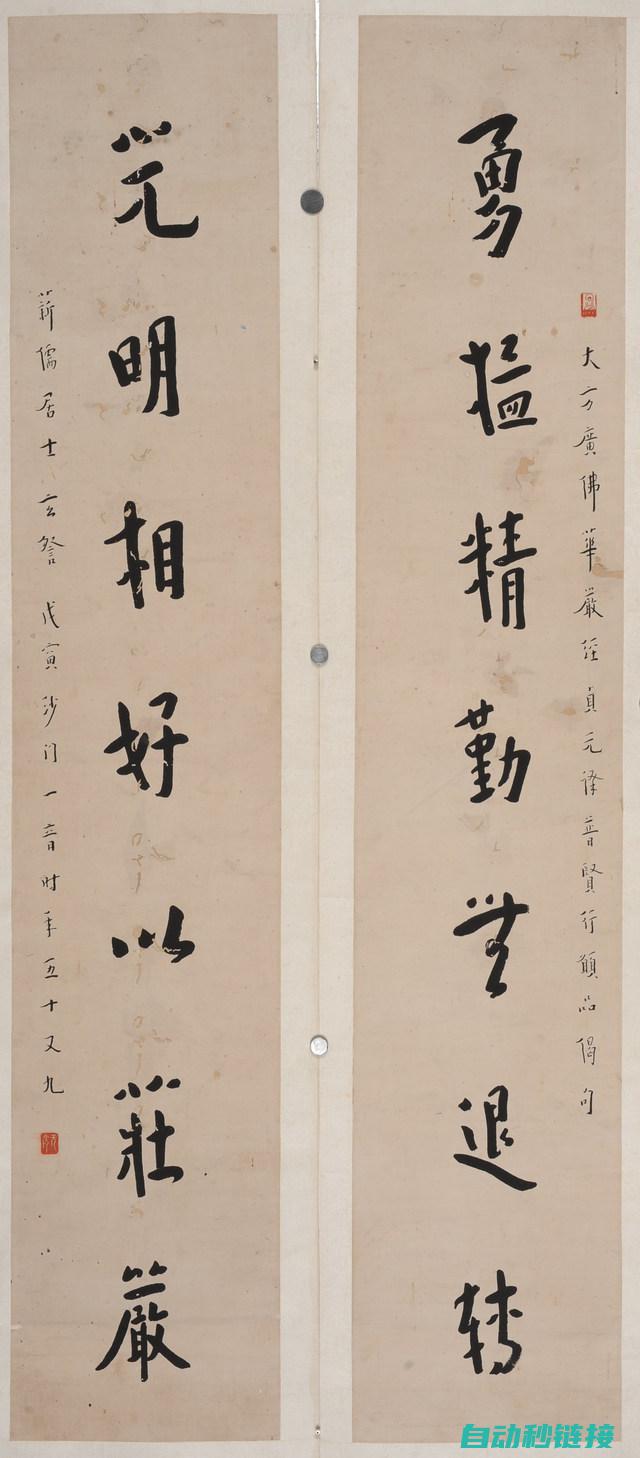 大方廣佛華嚴經貞元譯普賢行願品偈句
勇猛精勤無退轉
光明相好以莊嚴
儒居士玄詧 戊寅沙门一音时年五十又九
自动秒链接